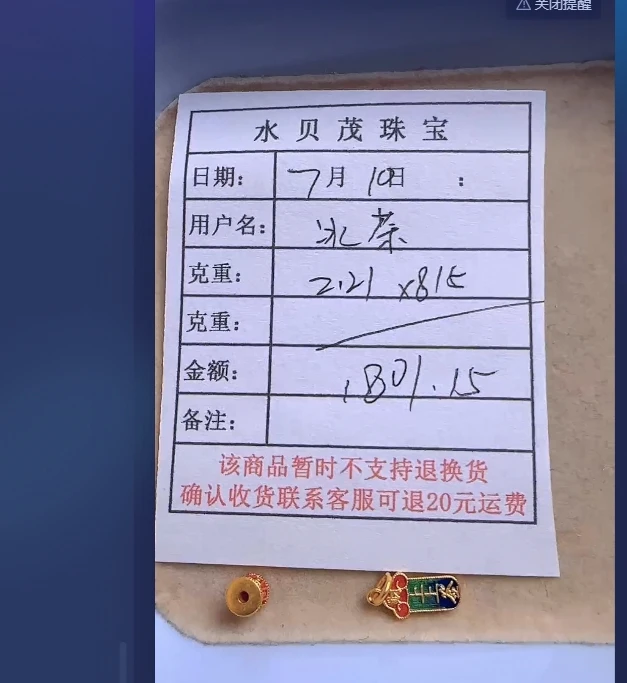 关闭提醒
水贝茂珠宝
日期: 7月10日 :
用户名: 冰荼
克重: 2.21 x815
克重:
金额: 1801.15
备注:
该商品暂时不支持退换货
确认收货联系客服可退20元运费